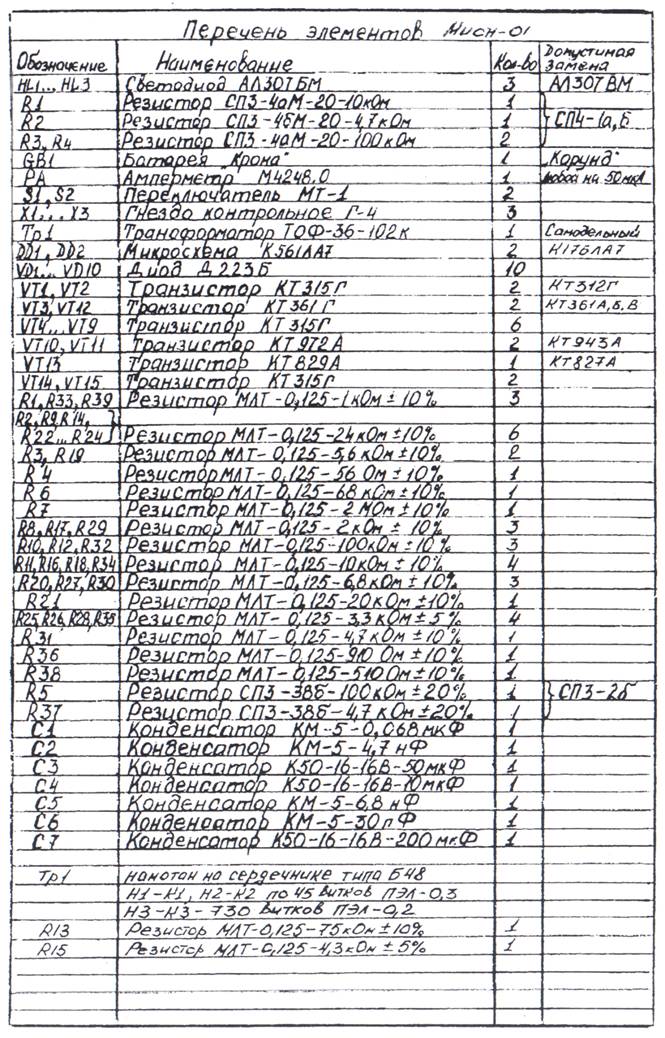 Перечень элементов Мисн-01
Обозначение Наименование Кол-во Допустимая замена
HL1... HL3 Светодиод АЛ307БМ 3 АЛ307ВМ
R1 Резистор СП3-4аМ-20-10кОм 1
R2 Резистор СП3-4бМ-20-4,7кОм 1 СП4-1а,б
R3, R4 Резистор СП3-4аМ-20-100кОм 2
GB1 Батарея „Крона" 1 „Корунд"
PA Амперметр М4248.0 1 любой на 50мкА
S1, S2 Переключатель МТ-1 2
X1... X3 Гнездо контрольное Г-4 3
Тр1 Трансформатор ТОФ-36-102к 1 Самодельный
DD1, DD2 Микросхема К561ЛА7 2 К176ЛА7
VD1... VD10 Диод Д223Б 10
VT1, VT2 Транзистор КТ315Г 2 КТ312Г
VT3, VT12 Транзистор КТ361Г 2 КТ361А,Б,В
VT4... VT9 Транзистор КТ315Г 6
VT10, VT11 Транзистор КТ972А 2 КТ943А
VT13 Транзистор КТ829А 1 КТ827А
VT14, VT15 Транзистор КТ315Г 2
R1, R33, R39 Резистор МЛТ-0,125-1кОм±10% 3
R2, R9, R14,
R22... R24 Резистор МЛТ-0,125-24кОм±10% 6
R3, R19 Резистор МЛТ-0,125-5,6кОм±10% 2
R4 Резистор МЛТ-0,125-56 Ом±10% 1
R6 Резистор МЛТ-0,125-68 кОм±10% 1
R7 Резистор МЛТ-0,125-2 МОм±10% 1
R8, R17, R29 Резистор МЛТ-0,125-2кОм ± 10% 3
R10, R12, R32 Резистор МЛТ-0,125-100кОм±10% 3
R11, R16, R18, R34 Резистор МЛТ-0,125-10кОм±10% 4
R20, R27, R30 Резистор МЛТ-0,125-6,8кОм±10% 3
R21 Резистор МЛТ-0,125-20кОм±10% 1
R25, R26, R28, R35 Резистор МЛТ-0,125-3,3кОм±5% 4
R31 Резистор МЛТ-0,125-4,7кОм±10% 1
R36 Резистор МЛТ-0,125-910 Ом±10% 1
R38 Резистор МЛТ-0,125-510 Ом±10% 1
R5 Резистор СП3-38б-100кОм±20% 1 СП3-2б
R37 Резистор СП3-38б-4,7кОм±20% 1
C1 Конденсатор КМ-5-0,068мкФ 1
C2 Конденсатор КМ-5-4,7нФ 1
C3 Конденсатор К50-16-16В-50мкФ 1
C4 Конденсатор К50-16-16В-10мкФ 1
C5 Конденсатор КМ-5-6,8нФ 1
C6 Конденсатор КМ-5-30пФ 1
C7 Конденсатор К50-16-16В-200мкФ 1
Тр1 намотан на сердечнике типа Б48
Н1-К1, Н2-К2 по 45 витков ПЭЛ-0,3
Н3-К3-730 витков ПЭЛ-0,2
R13 Резистор МЛТ-0,125-75кОм±10% 1
R15 Резистор МЛТ-0,125-4,3кОм±5% 1